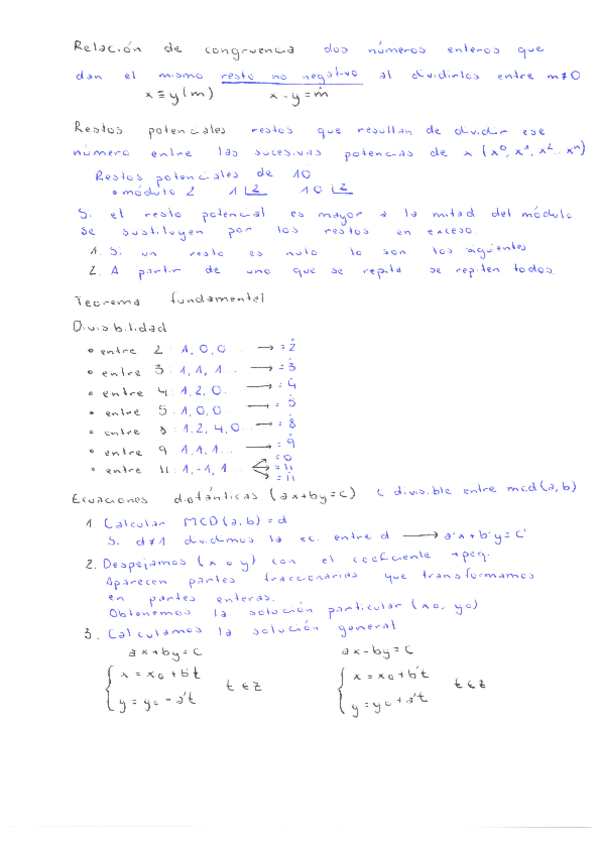 Relación de congruencia dos números enteros que
dan el mismo resto no negativo al dividirlos entre m≠0
x≡y(m) x-y=ṁ
Restos potenciales restos que resultan de dividir ese
número entre las sucesivas potencias de x (x⁰, x¹, x²..xⁿ)
Restos potenciales de 10
• módulo 2 1 |2 10 |2
Si el resto potencial es mayor a la mitad del módulo
se sustituyen por los restos en exceso.
1. Si un resto es nulo lo son los siguientes
2. A partir de uno que se repita se repiten todos.
Teorema fundamental
Divisibilidad
• entre 2: 1, 0, 0... → = 2̇
• entre 3: 1, 1, 1... → = 3̇
• entre 4: 1, 2, 0.. → = 4̇
• entre 5: 1, 0, 0... → = 5̇
• entre 8: 1, 2, 4, 0... → = 8̇
• entre 9: 1, 1, 1... → = 9̇
• entre 11: 1, -1, 1... = 0
= 11
= 11
Ecuaciones diofánticas (ax+by=c) c divisible entre mcd(a,b)
1. Calcular MCD(a,b)=d
Si d≠1 dividimos la ec. entre d → a'x+b'y=c'
2. Despejamos (x o y) con el coeficiente +peq.
Aparecen partes fraccionarias que transformamos
en partes enteras.
Obtenemos la solución particular (x0, y0)
3. Calculamos la solución general
ax+by=c ax-by=c
{ x=x0+b't t∈Z { x=x0+b't t∈Z
y=y0-a't y=y0+a't